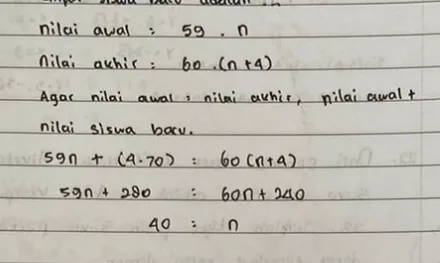 nilai awal : 59 . n
nilai akhir : 60 . (n+4)
Agar nilai awal = nilai akhir, nilai awal +
nilai siswa baru.
59n + (4.70) = 60(n+4)
59n + 280 = 60n + 240
40 = n